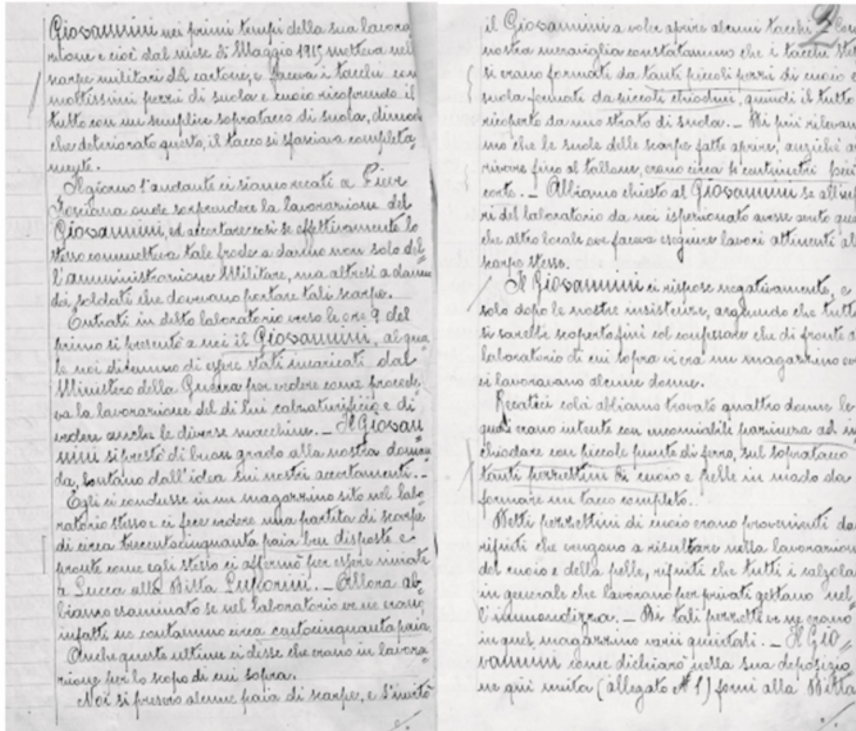 Giovannini nei primi tempi della sua lavora
zione e cioè dal mese di Maggio 1915 metteva nel
scarpe militari del cartone, e faceva i tacchi con
moltissimi pezzi di suola e cuoio ricoprendo il
tutto con un semplice sopratacco di suola, dimod
che deteriorato questo, il tacco si sfasciava completa
mente.
Il giorno 1° andante ci siamo recati a Pieve
Fosciana onde sorprendere la lavorazione del
Giovannini, ed accertare così se effettivamente lo
stesso commetteva tale frode a danno non solo del=
l'amministrazione Militare, ma altresì a danno
dei soldati che dovevano portare tali scarpe.
Entrati in detto laboratorio verso le ore 9 del
primo si presentò a noi il Giovannini, al qua
le noi dicemmo di essere stati incaricati dal
Ministero della Guerra per vedere come procede
va la lavorazione del di lui calzaturificio e di
vedere anche le diverse macchine. - Il Giovan
nini si prestò di buon grado alla nostra doman
da, lontano dall'idea sui nostri accertamenti. -
Egli ci condusse in un magazzino sito nel labo
ratorio stesso e ci fece vedere una partita di scarpe
di circa trecentocinquanta paia ben disposte e
pronte come egli stesso ci affermò per essere inviate
a Lucca alla Ditta Luporini. - Allora ab
biamo esaminato se nel laboratorio ve ne erano
infatti ne contammo circa centocinquanta paia
Anche queste ultime ci disse che erano in lavora
zione per lo scopo di cui sopra.
Noi si presero alcune paia di scarpe, e s'invitò
./.
2
il Giovannini a voler aprire alcuni tacchi. Con
nostra meraviglia constatammo che i tacchi stes
si erano formati da tanti piccoli pezzi di cuoio e
suola fermati da piccoli chiodini, quindi il tutto
ricoperto da uno strato di suola. - Di più rilevam
mo che le suole delle scarpe fatte aprire, anziché ar
rivare fino al tallone, erano circa centimetri più
corte. - Abbiamo chiesto al Giovannini se all'infuo
ri del laboratorio da noi ispezionato avesse avuto qual
che altro locale ove faceva eseguire lavori attinenti al
scarpe stesse.
Il Giovannini ci rispose negativamente, e
solo dopo le nostre insistenze, arguendo che tutto
si sarebbe scoperto finì col confessare che di fronte al
laboratorio di cui sopra vi era un magazzino ove
ci lavoravano alcune donne.
Recatici colà abbiamo trovato quattro donne le
quali erano intente con pazienza ad in
chiodare con piccole punte di ferro, sul sopratacco
tanti pezzettini di cuoio e pelle in modo da
formare un tacco completo.
Detti pezzettini di cuoio erano provenienti dai
rifiuti che vengono a risultare nella lavorazione
del cuoio e della pelle, rifiuti che tutti i calzolai
in generale che lavorano per privati gettano nel=
l'immondizza. - Di tali pezzetti ve ne erano
in quel magazzino varii quintali. - Il Gio
vannini come dichiarò nella sua deposizio
ne qui unita (allegato N° 1) fornì alla Ditta
./.